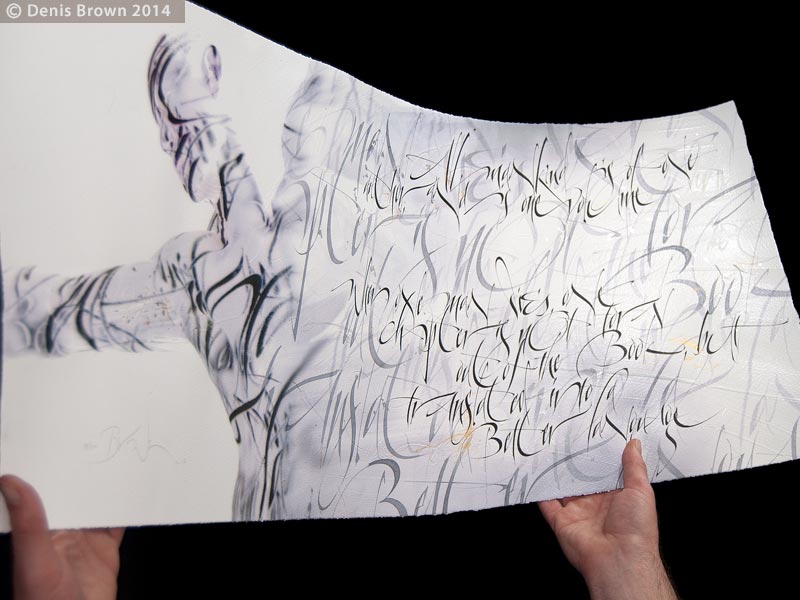 © Denis Brown 2014
All mankind is of one
author and is one volume
When one man dies one
chapter is not torn
out of the Book, but
translated into a
Better language